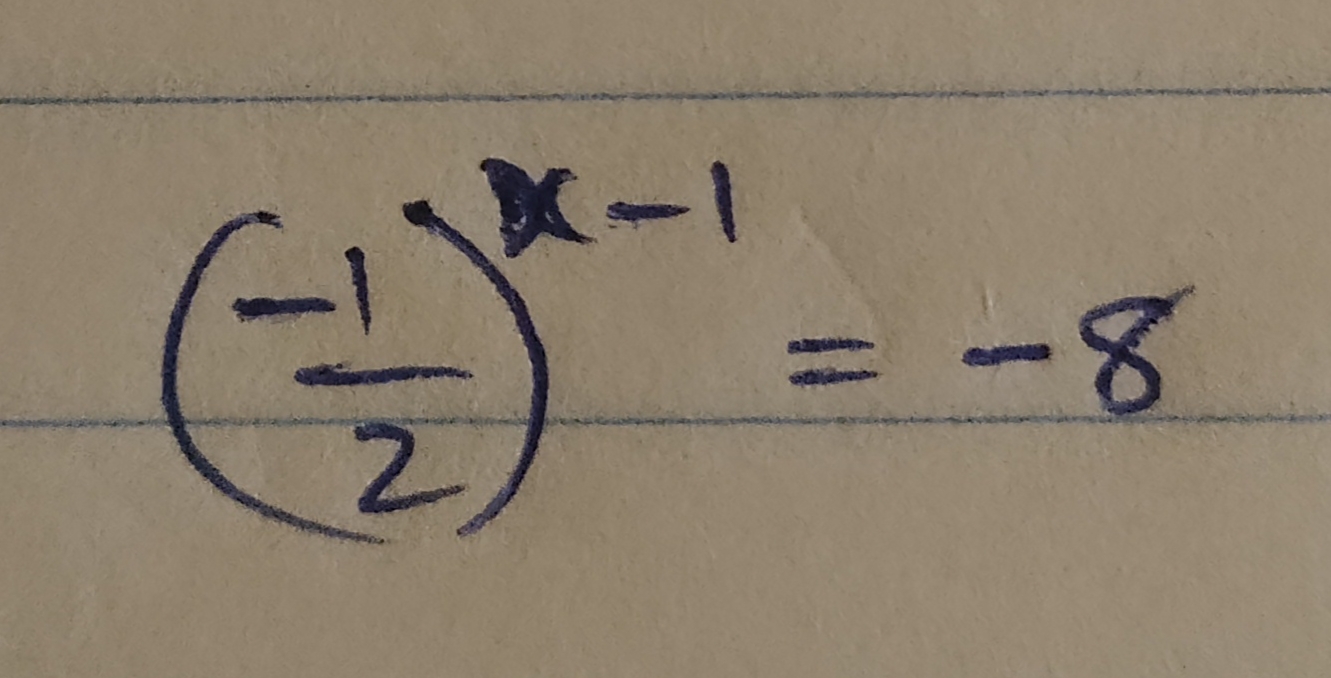 (-1/2)^(x-1) = -8